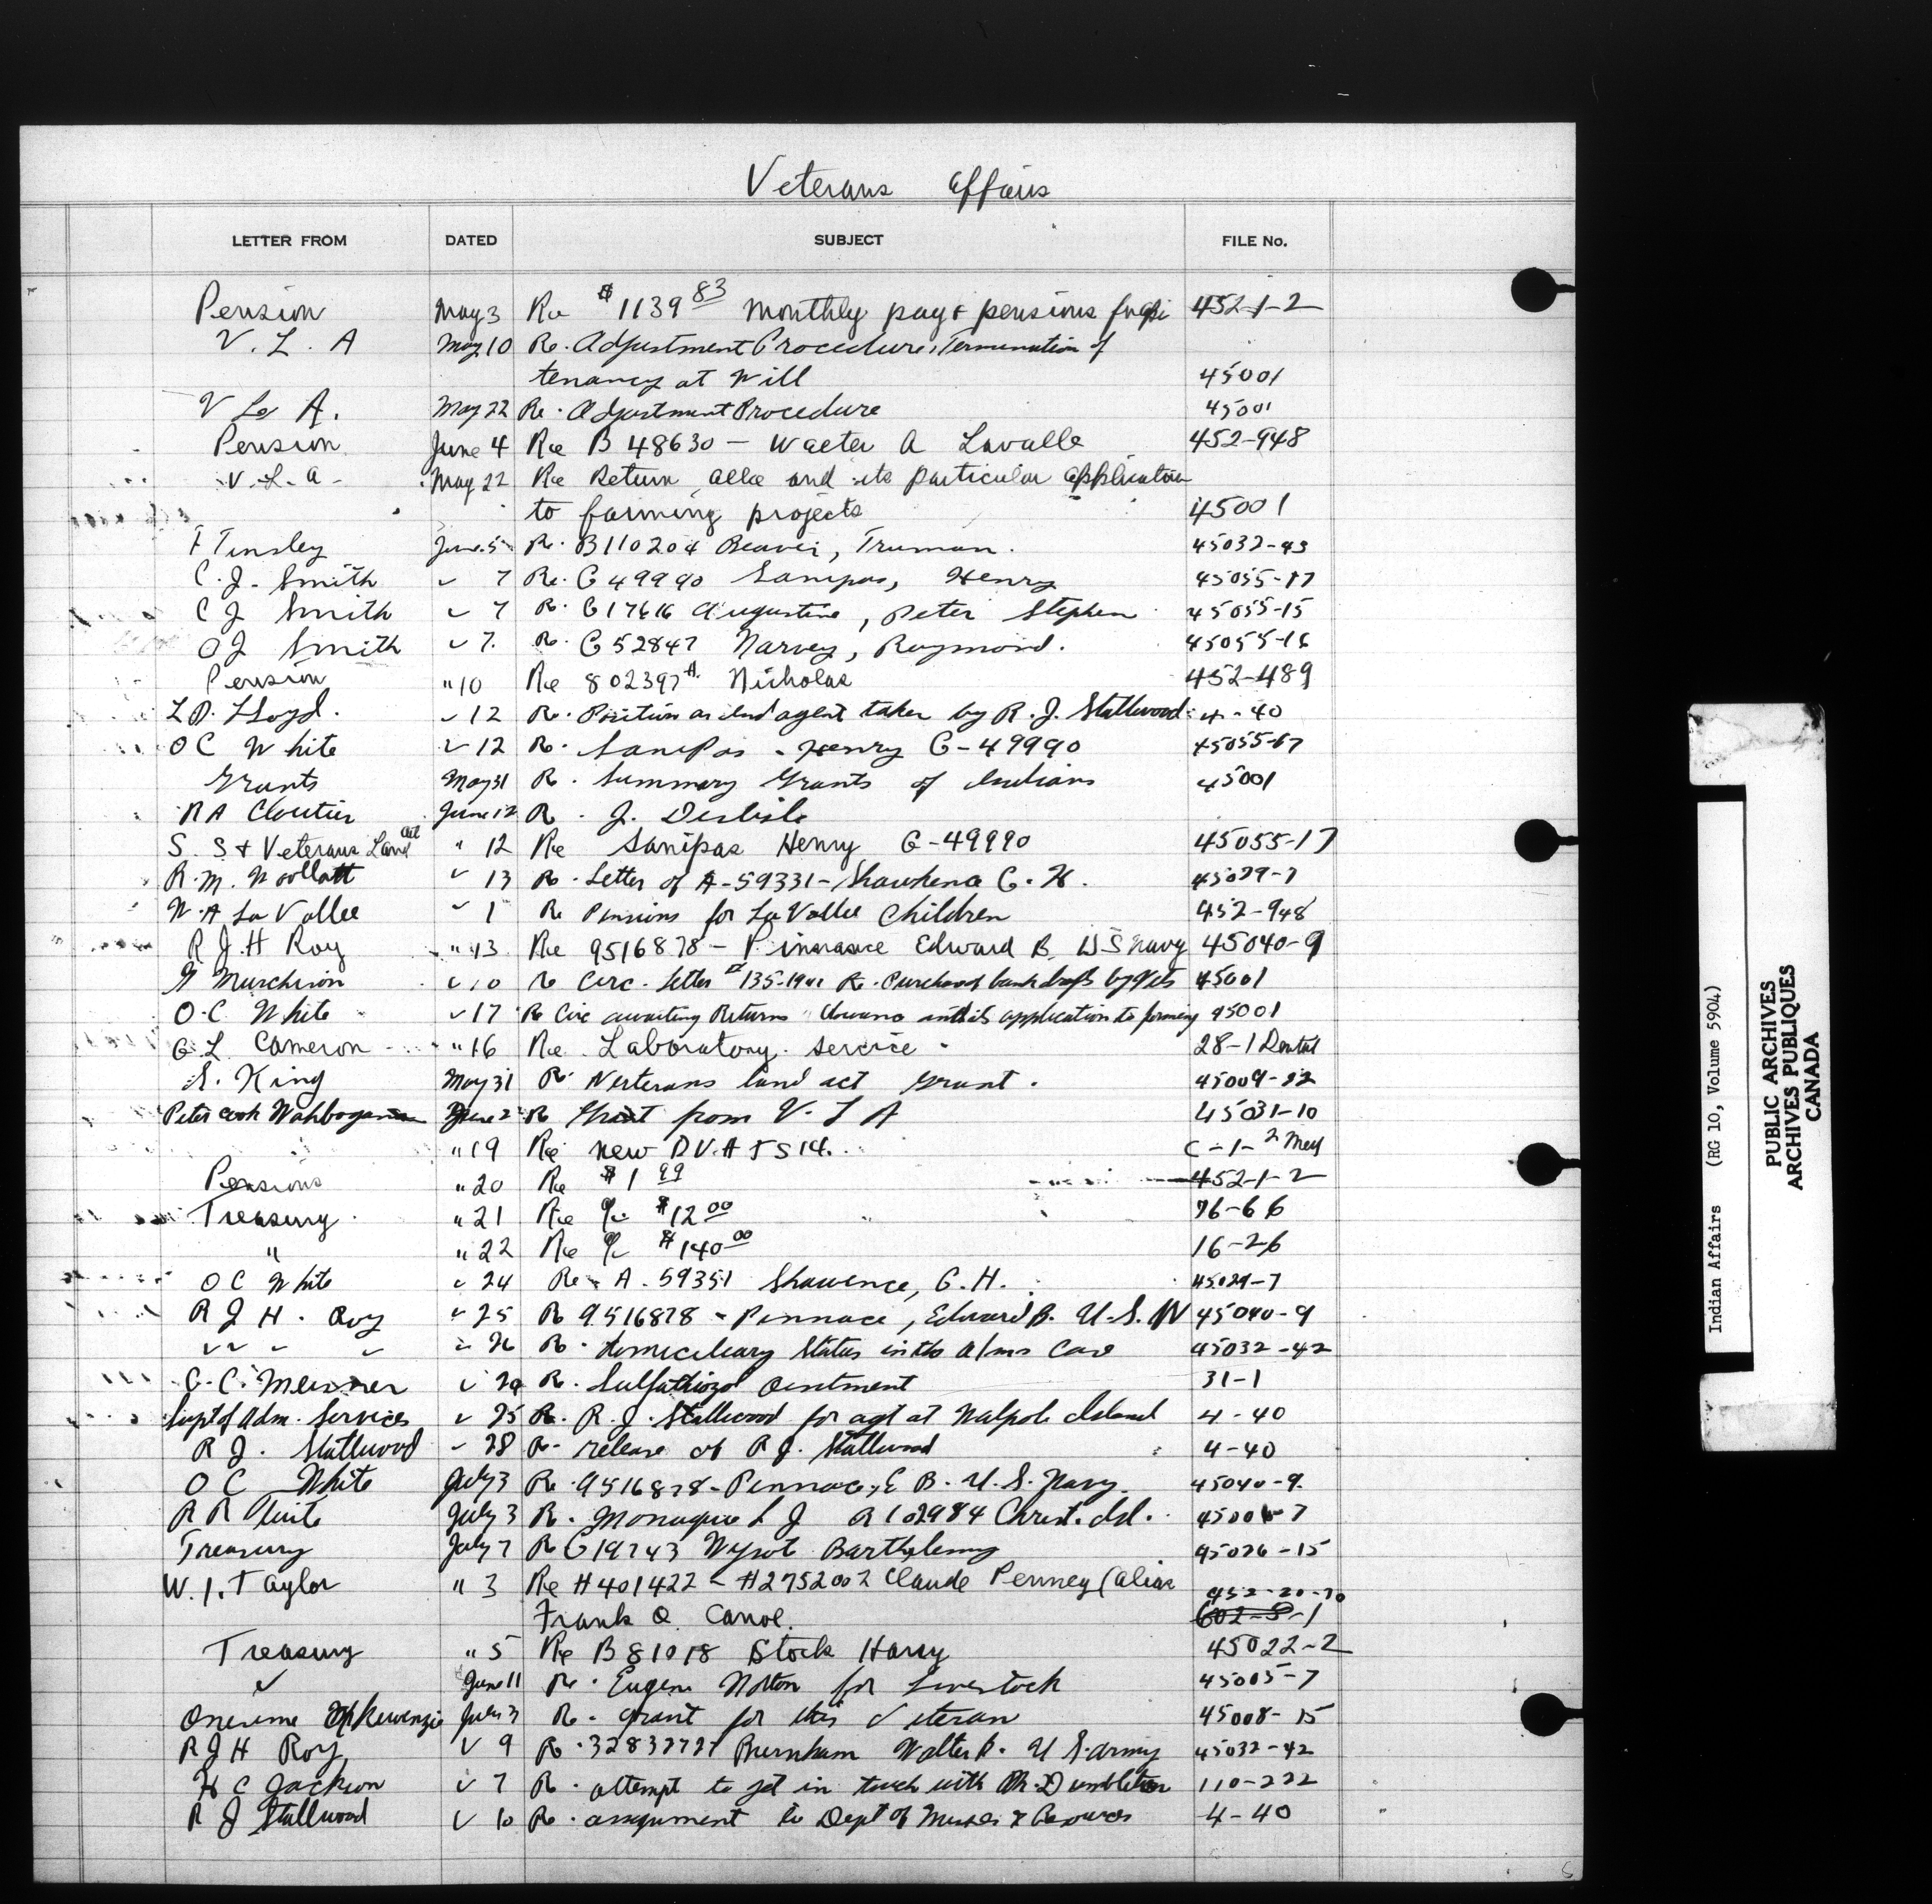 Veterans Affairs
LETTER FROM DATED SUBJECT FILE No.
Pension May 3 Re $1139 83 Monthly pay & pensions 452-1-2
V. L. A May 10 Re. Adjustment Procedure, Termination of
tenancy at Will 45001
V L A. May 22 Re. Adjustment Procedure 45001
Pension June 4 Re B 48630 - Walter A Lavalle 452-948
V. L. A - May 22 Re Return and its particular application
to farming projects 45001
F Tinsley June 5 Re. B110204 Beaver, Truman. 45032-43
C. J. Smith " 7 Re. G 49990 Sanipas, Henry 45055-17
C J Smith " 7 Re. G17616 Augustine, Peter Stephen 45055-15
C J Smith " 7. Re. G 52847 Narvey, Raymond. 45055-16
Pension " 10 Re 802397 A. Nicholas 452-489
L D. Lloyd. " 12 Re. Position as Ind agent taken by R. J. Stallwood 4-40
O C White " 12 Re. Sanipas - Henry G-49990 45055-17
Grants May 31 Re. Summary Grants of Indians 45001
R A Cloutier June 12 Re. J. Deslisle
S. S & Veterans Land Act " 12 Re Sanipas Henry G-49990 45055-17
R. M. Woollatt " 13 Re. Letter of A-59331- G. H. 45029-7
W. A La Vallee " 1 Re Pensions for La Vallee Children 452-948
R J H Roy " 13 Re 9516878 - Edward B. US Navy 45040-9
G Murchison " 10 Re Circ. Letter # 135-1941 Re. Purchase of bank drafts by Vets 45001
O. C. White " 17 Re Circ awaiting Returns and its application to farming 45001
G L Cameron " 16 Re. Laboratory service - 28-1 Dental
S. King May 31 Re Veterans land act grant. 45009-22
Peter Cook June 2 Re Grant from V. L A 45031-10
" 19 Re new D V. A 514. C-1-2 Med
Pensions " 20 Re $1 99 452-1-2
Treasury " 21 Re $12 00 76-66
" " 22 Re $140 00 16-26
O C White " 24 Re A. 59351 Shawence, G. H. 45029-7
R J H. Roy " 25 Re 9516878 - Pennace, Edward B. U. S. N 45040-9
" " " " " 26 Re. domiciliary status in the Case 45032-42
G. C. Re. Sulfathiozol Ointment 31-1
Supt of Adm. Services " 25 Re. R. J. Stallwood for agt at Walpole Island 4-40
R J. Stallwood " 28 Re- release of R J. Stallwood 4-40
O C White July 3 Re. 9516878 - Pennace, E B. U. S. Navy. 45040-9.
R R Tuite July 3 Re. Monague L J A 102984 Christ. Isl.
Treasury July 7 Re G19743 Barthelemy 45026-15
W. I. Taylor " 3 Re H401422 - H2752002 Claude Penney (alias 452-20-70
Frank O. Canoe. 602-8-1
Treasury " 5 Re B 81018 Stock Harry 45022-2
" June 11 Re. Eugene Norton for Livestock 45005-7
Onesime July 3 Re. grant for this Veteran 45008-15
R J H Roy " 9 Re. 32837727 Burnham Walter P. U S. army 45032-42
H C Jackson " 7 Re. attempt to get in touch with Dr. Dumbleton 110-222
R J Stallwood " 10 Re. assignment to Dept of Mines & Resources 4-40
Indian Affairs (RG 10, Volume 5904)
PUBLIC ARCHIVES
ARCHIVES PUBLIQUES
CANADA